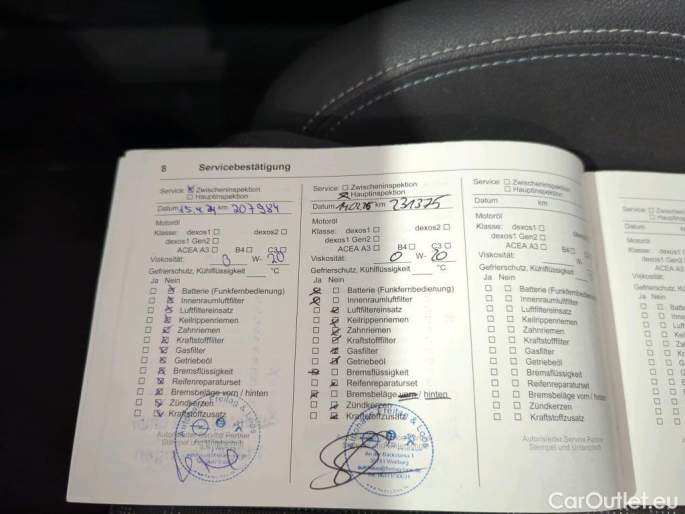 8 Servicebestätigung
Service: ☒ Zwischeninspektion
☐ Hauptinspektion
Datum km 207984
Motoröl
Klasse: dexos1 ☐ dexos2 ☐
dexos1 Gen2 ☐
ACEA A3 ☐ B4 ☐ C3 ☐
Viskosität: 0 W- 20
Gefrierschutz, Kühlflüssigkeit °C
Ja Nein
☐ ☒ Batterie (Funkfernbedienung)
☐ ☒ Innenraumluftfilter
☐ ☒ Luftfiltereinsatz
☐ ☒ Keilrippenriemen
☐ ☒ Zahnriemen
☐ ☒ Kraftstofffilter
☐ ☒ Gasfilter
☐ ☒ Getriebeöl
☐ ☒ Bremsflüssigkeit
☐ ☒ Reifenreparaturset
☐ ☒ Bremsbeläge vorn / hinten
☐ ☒ Zündkerzen
☐ ☒ Kraftstoffzusatz
Autorisierter Service Partner
Freitag & Loos
Service: ☐ Zwischeninspektion
☒ Hauptinspektion
Datum km 231375
Motoröl
Klasse: dexos1 ☐ dexos2 ☐
dexos1 Gen2 ☐
ACEA A3 ☐ B4 ☐ C3 ☐
Viskosität: 0 W- 20
Gefrierschutz, Kühlflüssigkeit °C
Ja Nein
☒ ☐ Batterie (Funkfernbedienung)
☒ ☐ Innenraumluftfilter
☐ ☒ Luftfiltereinsatz
☐ ☒ Keilrippenriemen
☐ ☒ Zahnriemen
☐ ☒ Kraftstofffilter
☐ ☒ Gasfilter
☐ ☒ Getriebeöl
☒ ☐ Bremsflüssigkeit
☐ ☒ Reifenreparaturset
☒ ☐ Bremsbeläge vorn / hinten
☐ ☒ Zündkerzen
☐ ☒ Kraftstoffzusatz
Freitag & Loos
Service: ☐ Zwischeninspektion
☐ Hauptinspektion
Datum km
Motoröl
Klasse: dexos1 ☐
dexos1 Gen2 ☐
ACEA A3 ☐ B4
Viskosität: W-
Gefrierschutz, Kühlflüssigkeit
Ja Nein
☐ ☐ Batterie (Funkfernbedienung)
☐ ☐ Innenraumluftfilter
☐ ☐ Luftfiltereinsatz
☐ ☐ Keilrippenriemen
☐ ☐ Zahnriemen
☐ ☐ Kraftstofffilter
☐ ☐ Gasfilter
☐ ☐ Getriebeöl
☐ ☐ Bremsflüssigkeit
☐ ☐ Reifenreparaturset
☐ ☐ Bremsbeläge vorn / hinten
☐ ☐ Zündkerzen
☐ ☐ Kraftstoffzusatz
Autorisierter Service Partner
Stempel und Unterschrift
Datum
Motoröl
Klasse:
Viskosität:
Ja Nein
CarOutlet.eu